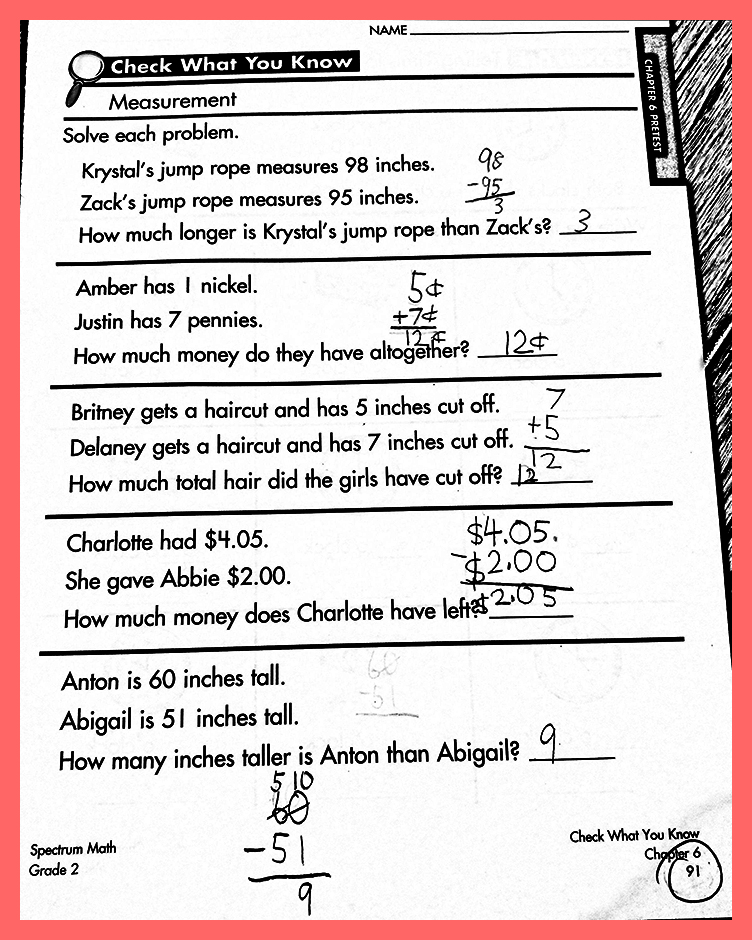 NAME
Check What You Know
CHAPTER 6 PRETEST
Measurement
Solve each problem.
Krystal's jump rope measures 98 inches. 98
Zack's jump rope measures 95 inches. -95
3
How much longer is Krystal's jump rope than Zack's? 3
Amber has 1 nickel. 5¢
Justin has 7 pennies. +7¢
12¢
How much money do they have altogether? 12¢
Britney gets a haircut and has 5 inches cut off. 7
Delaney gets a haircut and has 7 inches cut off. +5
12
How much total hair did the girls have cut off? 12
Charlotte had $4.05. $4.05.
She gave Abbie $2.00. -$2.00
How much money does Charlotte have left? $2.05
Anton is 60 inches tall. 60
Abigail is 51 inches tall. -51
How many inches taller is Anton than Abigail? 9
5 10
60
-51
9
Spectrum Math
Grade 2
Check What You Know
Chapter 6
91